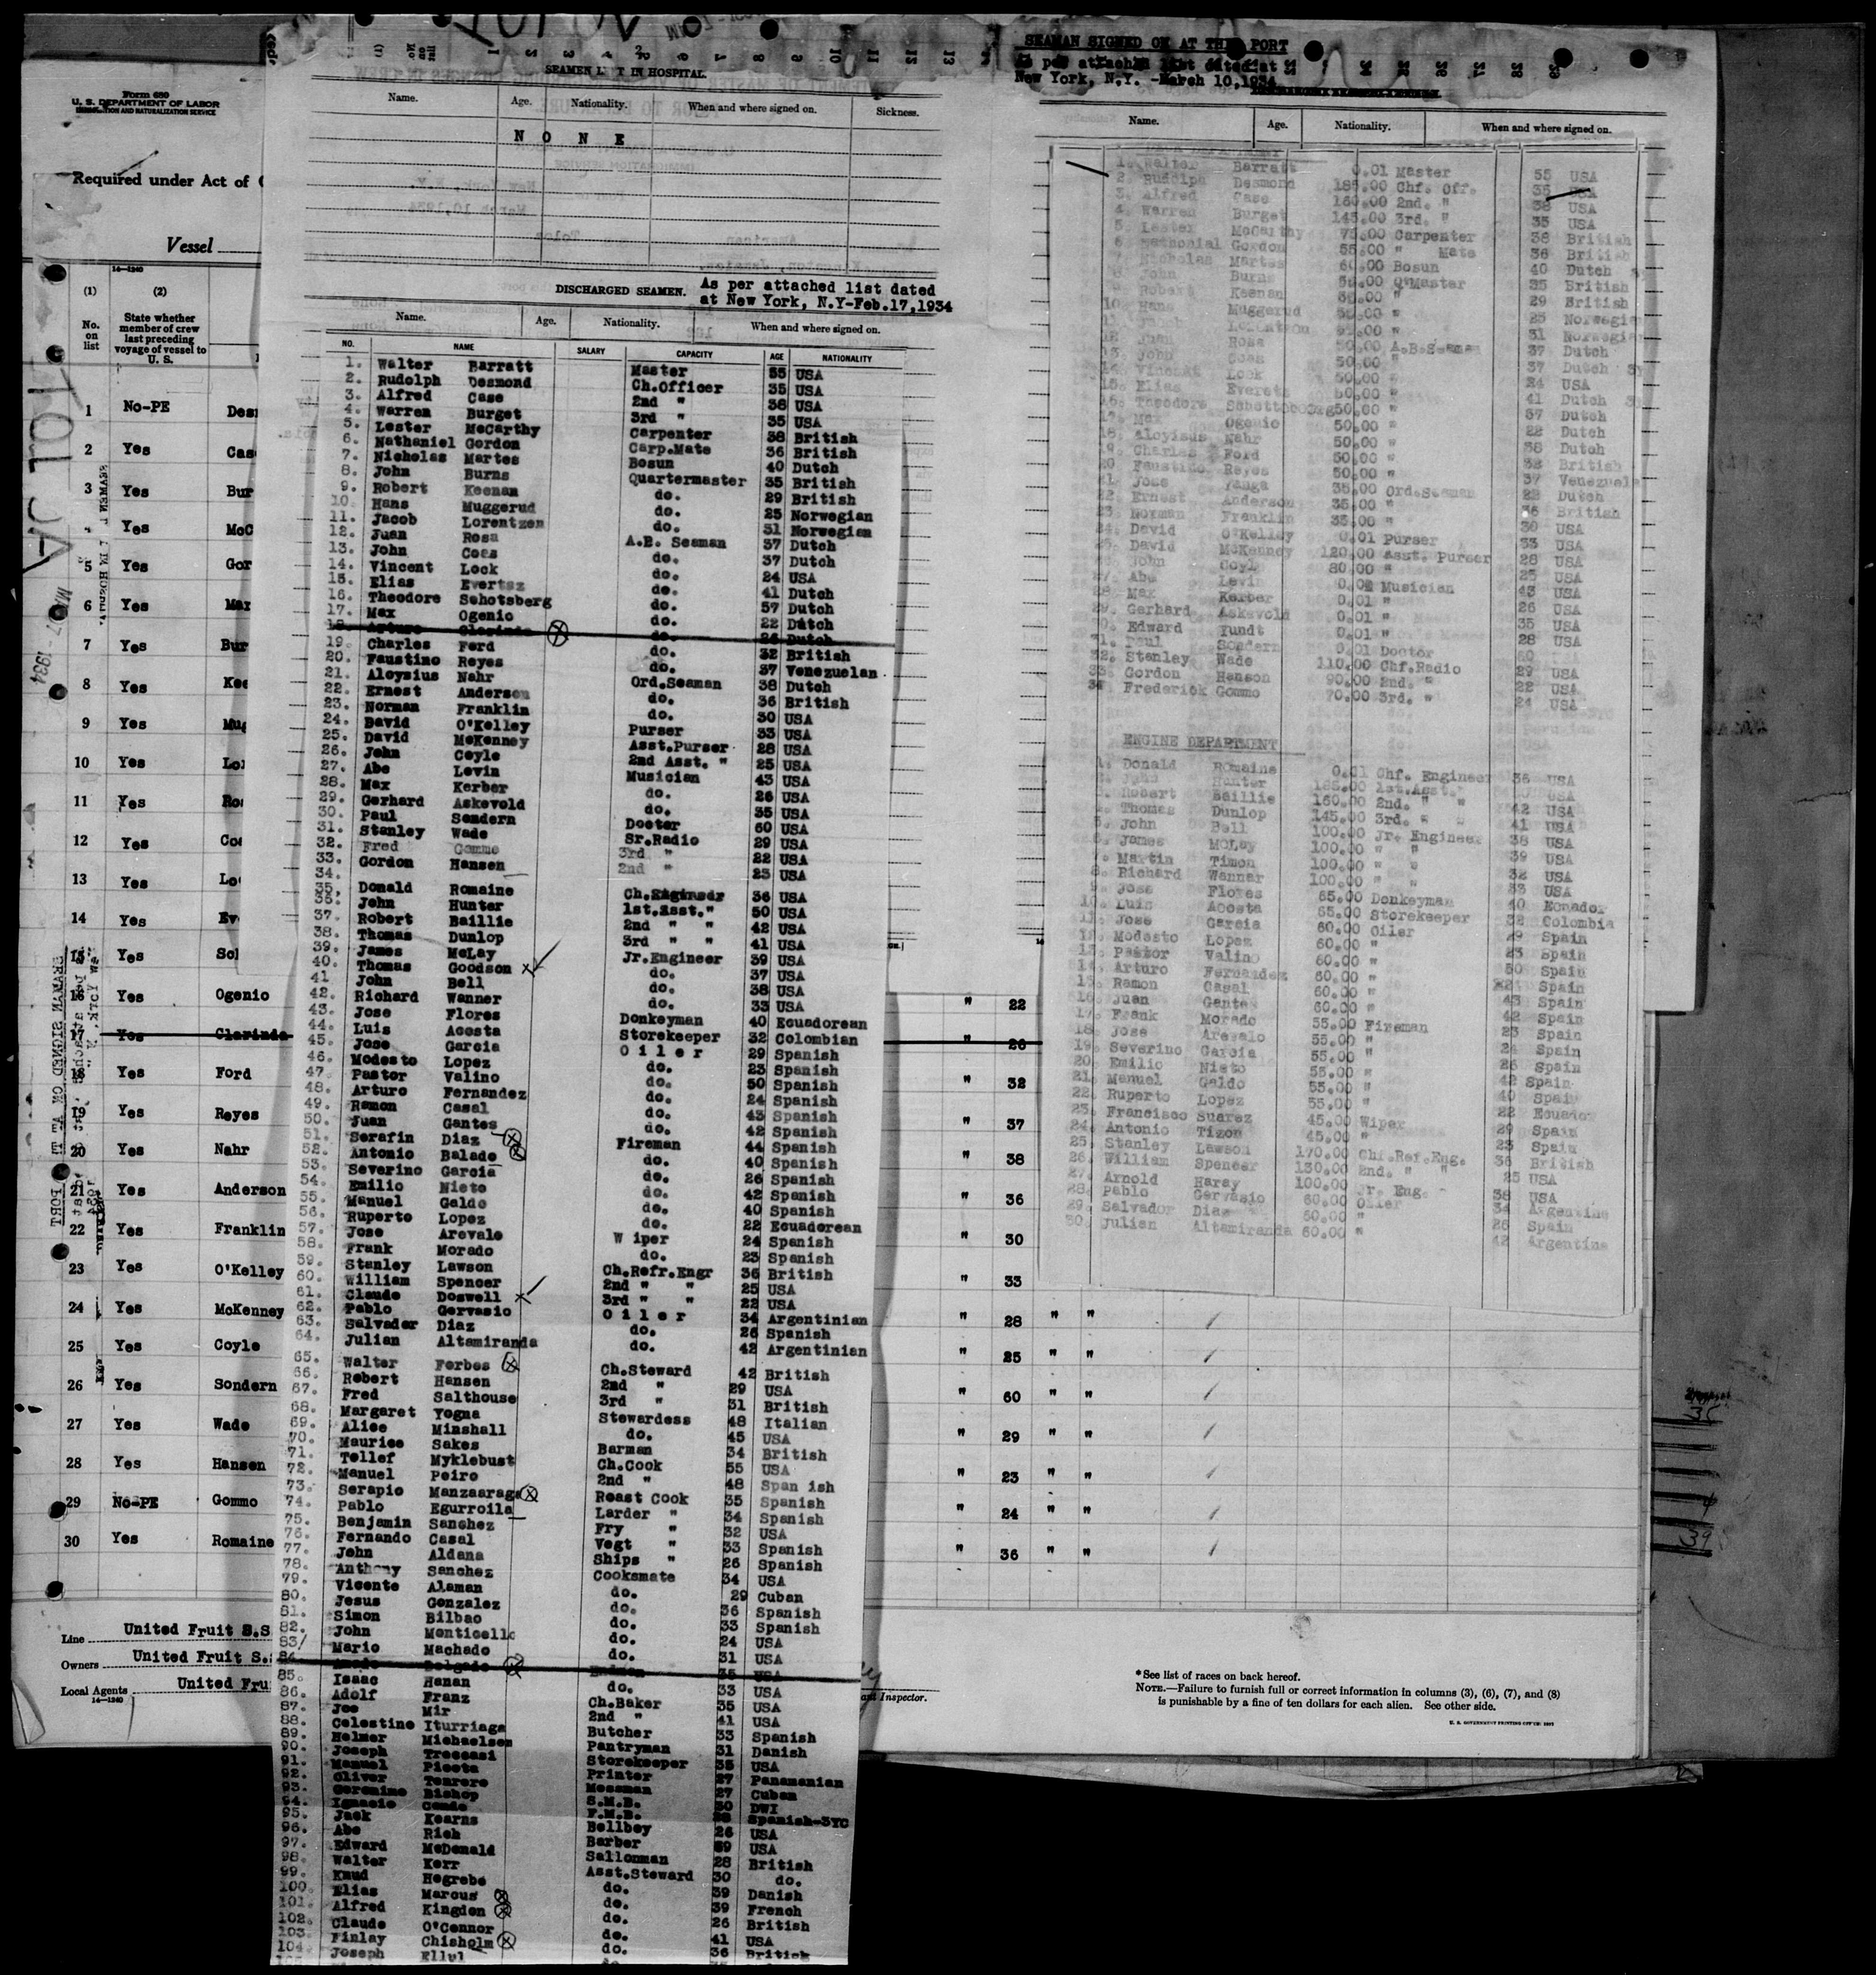 Form 680
U. S. DEPARTMENT OF LABOR
IMMIGRATION AND NATURALIZATION SERVICE
Required under Act of
Vessel
14—1240
(1) (2)
No. on list
State whether member of crew last preceding voyage of vessel to U. S.
1 No-PE
2 Yes Cas
3 Yes Bur
4 Yes McC
5 Yes Gor
6 Yes Mar
7 Yes Bur
8 Yes Kee
9 Yes Mug
10 Yes Lo
11 Yes Ro
12 Yes Co
13 Yes Lo
14 Yes Ev
15 Yes
16 Yes Ogenio " 22
17 Yes Clarinda " 26
18 Yes Ford " 32
19 Yes Reyes " 37
20 Yes Nahr " 38
21 Yes Anderson " 36
22 Yes Franklin " 30
23 Yes O'Kelley " 33
24 Yes McKenney " 28 " "
25 Yes Coyle " 25 " "
26 Yes Sondern " 60 " "
27 Yes Wade " 29 " "
28 Yes Hansen " 23 " "
29 No-PE Gommo " 24 " "
30 Yes Romaine " 36 " "
Line United Fruit S.S
Owners United Fruit S.
Local Agents United Fru
14—1240
SEAMEN LEFT IN HOSPITAL.
Name. Age. Nationality. When and where signed on. Sickness.
N O N E
DISCHARGED SEAMEN. As per attached list dated
at New York, N.Y-Feb.17,1934
Name. Age. Nationality. When and where signed on.
NO. NAME SALARY CAPACITY AGE NATIONALITY
1. Walter Barratt Master 55 USA
2. Rudolph Desmond Ch.Officer 35 USA
3. Alfred Case 2nd " 36 USA
4. Warren Burget 3rd " 35 USA
5. Lester McCarthy Carpenter 38 British
6. Nathaniel Gordon Carp.Mate 36 British
7. Nicholas Martes Bosun 40 Dutch
8. John Burns Quartermaster 35 British
9. Robert Keenan do. 29 British
10. Hans Muggerud do. 25 Norwegian
11. Jacob Lorentzen do. 31 Norwegian
12. Juan Rosa A.B. Seaman 37 Dutch
13. John Coes do. 37 Dutch
14. Vincent Lock do. 24 USA
15. Elias Evertsz do. 41 Dutch
16. Theodore Schotsberg do. 57 Dutch
17. Max Ogenio do. 22 Dutch
18. Arturo Clarinda do. 26 Dutch
19. Charles Ford do. 32 British
20. Faustino Reyes do. 37 Venezuelan
21. Aloysius Nahr Ord.Seaman 38 Dutch
22. Ernest Anderson do. 36 British
23. Norman Franklin do. 30 USA
24. David O'Kelley Purser 33 USA
25. David McKenney Asst.Purser 28 USA
26. John Coyle 2nd Asst. " 25 USA
27. Abe Levin Musician 43 USA
28. Max Kerber do. 26 USA
29. Gerhard Askevold do. 35 USA
30. Paul Sondern Doctor 60 USA
31. Stanley Wade Sr.Radio 29 USA
32. Fred Gommo 3rd " 22 USA
33. Gordon Hansen 2nd " 23 USA
34.
35. Donald Romaine Ch.Engineer 36 USA
36. John Hunter 1st.Asst." 50 USA
37. Robert Baillie 2nd " " 42 USA
38. Thomas Dunlop 3rd " " 41 USA
39. James McLay Jr.Engineer 39 USA
40. Thomas Goodson do. 37 USA
41 John Bell do. 38 USA
42. Richard Wanner do. 33 USA
43. Jose Flores Donkeyman 40 Ecuadorean
44. Luis Acosta Storekeeper 32 Colombian
45. Jose Garcia O i l e r 29 Spanish
46. Modesto Lopez do. 23 Spanish
47. Pastor Valino do. 50 Spanish
48. Arturo Fernandez do. 24 Spanish
49. Ramon Casal do. 43 Spanish
50. Juan Gantes do. 42 Spanish
51. Serafin Diaz Fireman 44 Spanish
52. Antonio Balado do. 40 Spanish
53. Severino Garcia do. 26 Spanish
54. Emilio Nieto do. 42 Spanish
55. Manuel Galdo do. 40 Spanish
56. Ruperto Lopez do. 22 Ecuadorean
57. Jose Arevalo W iper 24 Spanish
58. Frank Morado do. 23 Spanish
59. Stanley Lawson Ch.Refr.Engr 36 British
60. William Spencer 2nd " " 25 USA
61. Claude Doswell 3rd " " 22 USA
62. Pablo Gervasio O i l e r 34 Argentinian
63. Salvador Diaz do. 26 Spanish
64. Julian Altamiranda do. 42 Argentinian
65. Walter Forbes Ch.Steward 42 British
66. Robert Hansen 2nd " 29 USA
67. Fred Salthouse 3rd " 31 British
68. Margaret Yogna Stewardess 48 Italian
69. Alice Minshall do. 45 USA
70. Maurice Sakes Barman 34 British
71. Tellef Myklebust Ch.Cook 55 USA
72. Manuel Peiro 2nd " 48 Span ish
73. Serapio Manzaaraga Roast Cook 35 Spanish
74. Pablo Egurroila Larder " 34 Spanish
75. Benjamin Sanchez Fry " 32 USA
76. Fernando Casal Vegt " 33 Spanish
77. John Aldana Ships " 26 Spanish
78. Anthony Sanchez Cooksmate 34 USA
79. Vicente Alaman do. 29 Cuban
80. Jesus Gonzalez do. 36 Spanish
81. Simon Bilbao do. 33 Spanish
82. John Monticello do. 24 USA
83/ Mario Machado do. 31 USA
84. Delgado 35 USA
85. Isaac Hanan do. 33 USA
86. Adolf Franz Ch.Baker 35 USA
87. Joe Mir 2nd " 41 USA
88. Celestino Iturriaga Butcher 33 Spanish
89. Helmer Michaelsen Pantryman 31 Danish
90. Joseph Treccasi Storekeeper 35 USA
91. Manuel Piecta Printer 27 Panamanian
92. Oliver Tenrero Messman 27 Cuban
93. Geronimo Bishop S.M.B. 30 DWI
94. Ignacio Conde F.M.B. 28 Spanish-3YC
95. Jack Kearns Bellboy 26 USA
96. Abe Rich Barber 29 USA
97. Edward McDonald Sallonman 28 British
98. Walter Kerr Asst.Steward 30 do.
99. Knud Hegrebe do. 39 Danish
100. Elias Marcus do. 39 French
101. Alfred Kingdon do. 26 British
102. Claude O'Connor do. 41 USA
103. Finlay Chisholm do. 36 British
104. Joseph Ellul
SEAMAN SIGNED ON AT THIS PORT
As per attached list dated at
New York, N.Y. -March 10,1934
Name. Age. Nationality. When and where signed on.
1. Walter Barratt 0.01 Master 55 USA
2. Rudolph Desmond 185.00 Chf. Off. 35 USA
3. Alfred Case 160.00 2nd. " 36 USA
4. Warren Burget 145.00 3rd. " 35 USA
5. Lester McCarthy 75.00 Carpenter 38 British
6. Nathanial Gordon 55.00 " Mate 36 British
7. Nicholas Martes 60.00 Bosun 40 Dutch
8. John Burns Q'Master 35 British
9. Robert Keenan " 29 British
10. Hans Muggerud " 25 Norwegia
11. " 31 Norwegia
12. Juan Rosa 50.00 A.B.Seaman 37 Dutch
13. John Coes 50.00 " 37 Dutch
14. Vincent Lock 50.00 " 24 USA
15. Elias Everets 50.00 " 41 Dutch
16. Theodore 50.00 " 57 Dutch
17. Max Ogenio 50.00 " 22 Dutch
18. Aloyisus Nahr 50.00 " 38 Dutch
19. Charles Ford 50.00 " 32 British
20. Faustino Reyes 50.00 " 37 Venezuel
21. Jose Yanga 35.00 Ord.Seaman 22 Dutch
22. Ernest Anderson 35.00 " 36 British
23. Norman Franklin 35.00 " 30 USA
24. David O'Kelley 0.01 Purser 33 USA
25. David McKenney 120.00 Asst. Purser 28 USA
26. John Coyl 80.00 " 25 USA
27. Abe Levin 0.01 Musician 43 USA
28. Max Kerber 0.01 " 26 USA
29. Gerhard Askevold 0.01 " 35 USA
30. Edward Yundt 0.01 " 28 USA
31. Paul Sondern 0.01 Doctor 60
32. Stanley Wade 110.00 Chf.Radio 29 USA
33. Gordon Hanson 90.00 2nd. " 22 USA
34 Frederick Gommo 70.00 3rd. " 24 USA
ENGINE DEPARTMENT
1. Donald Romaine 0.01 Chf. Engineer 36 USA
2. John Hunter 185.00 1st.Asst." USA
3. Robert Baillie 160.00 2nd. " " 42 USA
4. Thomas Dunlop 145.00 3rd. " " 41 USA
5. John Bell 100.00 Jr. Engineer 38 USA
6. James McLay 100.00 " " 39 USA
7. Martin Timon 100.00 " " 32 USA
8. Richard Wannar 100.00 " " 33 USA
9. Jose Flores 65.00 Donkeyman 40 Ecuador
10. Luis Acosta 65.00 Storekeeper 32 Colombia
11. Jose Garcia 60.00 Oiler 29 Spain
12. Modesto Lopez 60.00 " 23 Spain
13. Pastor Valino 60.00 " 50 Spain
14. Arturo Fernandez 60.00 " Spain
15. Ramon Casal 60.00 " 43 Spain
16. Juan Gantes 60.00 " 42 Spain
17. Frank Morado 55.00 Fireman 23 Spain
18. Jose Arevalo 55.00 " 24 Spain
19. Severino Garcia 55.00 " 26 Spain
20. Emilio Nieto 55.00 " 42 Spain
21. Manuel Galdo 55.00 " 40 Spain
22. Ruperto Lopez 55.00 " 22 Ecuador
23. Francisco Suarez 45.00 Wiper 29 Spain
24. Antonio Tizon 45.00 " 23 Spain
25. Stanley Lawson 170.00 Chf.Ref.Eng. 36 British
26. William Spencer 130.00 2nd. " " 25 USA
27. Arnold Haray 100.00 Jr. Eng. 38 USA
28. Pablo Gervasio 60.00 Oiler 34 Argentine
29. Salvador Diaz 60.00 " 26 Spain
30. Julian Altamiranda 60.00 " 42 Argentina
Inspector.
*See list of races on back hereof.
NOTE.—Failure to furnish full or correct information in columns (3), (6), (7), and (8)
is punishable by a fine of ten dollars for each alien. See other side.
U. S. GOVERNMENT PRINTING OFFICE